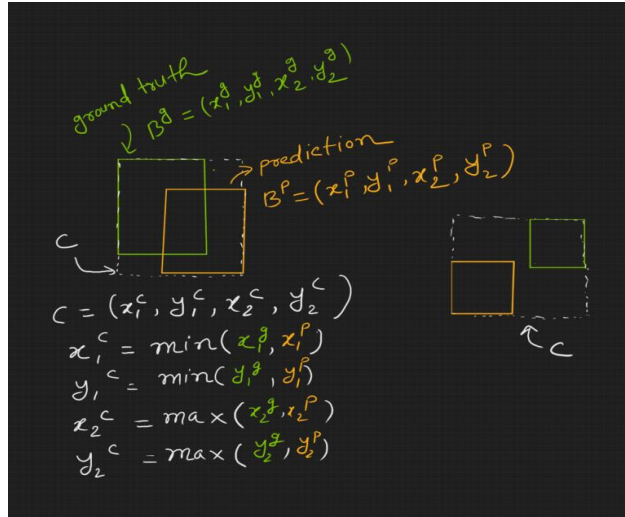 ground truth
B^g = (x_1^g, y_1^g, x_2^g, y_2^g)
prediction
B^p = (x_1^p, y_1^p, x_2^p, y_2^p)
C
C = (x_1^c, y_1^c, x_2^c, y_2^c)
x_1^c = min(x_1^g, x_1^p)
y_1^c = min(y_1^g, y_1^p)
x_2^c = max(x_2^g, x_2^p)
y_2^c = max(y_2^g, y_2^p)
C